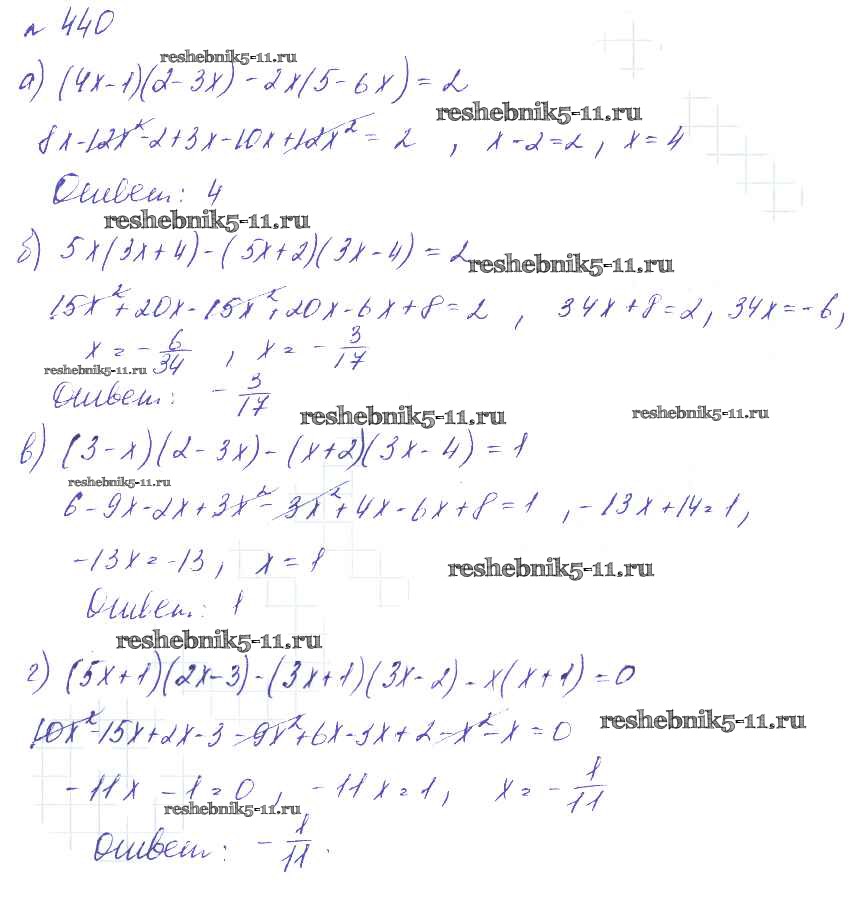 № 440
reshebnik5-11.ru
а) (4x-1)(2-3x) - 2x(5-6x) = 2
reshebnik5-11.ru
8x-12x²-2+3x-10x+12x² = 2 , x-2=2, x=4
Ответ: 4
reshebnik5-11.ru
б) 5x(3x+4)-(5x+2)(3x-4)=2
reshebnik5-11.ru
15x²+20x-15x²+20x-6x+8=2 , 34x+8=2, 34x=-6,
x = - 6/34 , x = - 3/17
reshebnik5-11.ru
Ответ: - 3/17
reshebnik5-11.ru
reshebnik5-11.ru
в) (3-x)(2-3x)-(x+2)(3x-4)=1
reshebnik5-11.ru
6-9x-2x+3x²-3x²+4x-6x+8=1 , -13x+14=1,
-13x=-13, x=1
reshebnik5-11.ru
Ответ: 1
reshebnik5-11.ru
г) (5x+1)(2x-3)-(3x+1)(3x-2)-x(x+1)=0
reshebnik5-11.ru
10x²-15x+2x-3-9x²+6x-3x+2-x²-x=0
-11x -1=0 , -11x=1, x= - 1/11
reshebnik5-11.ru
Ответ: - 1/11.